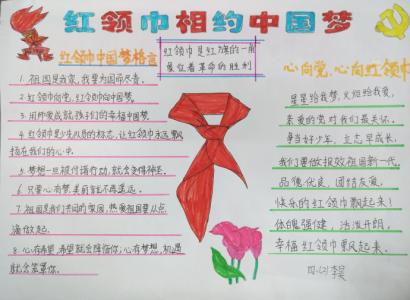 红领巾相约中国梦
红领巾中国梦格言
1. 祖国是我家,我要为国而努奋。
2. 红领巾向党,红领巾向中国梦。
3. 用所做成就,
4. 红领巾是少先队员的标志,让红领巾永远飘
扬在我们的心中。
5. 梦想一旦被付诸行动,就会变得神圣。
6. 只要心有梦,美丽就不再遥远。
7. 祖国是我们共同的家园,热爱祖国要从点
滴做起。
8. 心有希望,希望就会降临你,心有梦想,机遇
就会笼罩你。
红领巾是红旗的一角
象征着革命的胜利
心向党,心向红领巾
星星给我梦,火炬给我爱,
亲爱的党对我们最关怀。
争当好少年,立志早成长,
我们要做报效祖国新一代。
品德优良,团结友爱,
快乐的红领巾飘起来!
体魄强健,活泼开朗,
幸福红领巾飘起来。
四(2)李昊